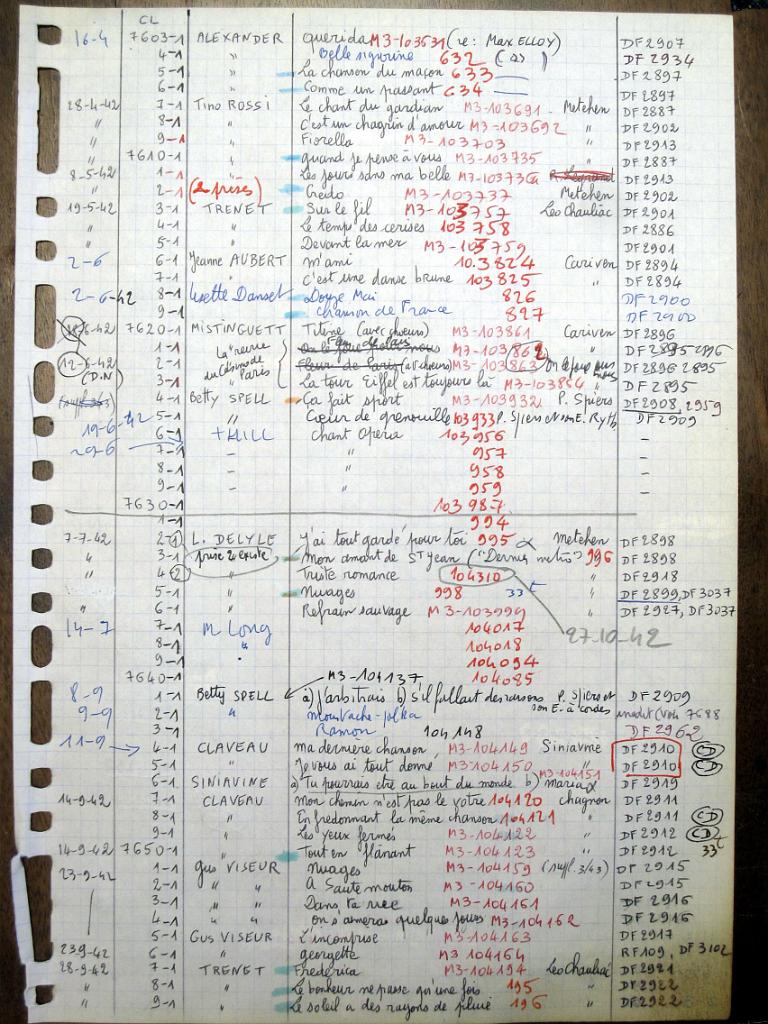 CL
16-4 7603-1 ALEXANDER querida M3-103631 (re: Max ELLOY) DF 2907
4-1 " Belle 632 (as) DF 2934
5-1 " La chanson du maçon 633 DF 2897
6-1 " Comme un passant 634 DF 2897
28-4-42 7-1 Tino ROSSI Le chant du gardian M3-103691 Metehen DF 2887
" 8-1 " C'est un chagrin d'amour M3-103692 " DF 2902
" 9-1 " Fiorella M3-103703 " DF 2913
7610-1 " quand je pense à vous M3-103735 " DF 2887
8-5-42 1-1 " Les jours sans ma belle M3-103736 DF 2913
" 2-1 (2 prises) Credo M3-103737 Metehen DF 2902
19-5-42 3-1 TRENET Sur le fil M3-103757 Leo Chauliac DF 2901
" 4-1 " Le temps des cerises 103758 DF 2886
" 5-1 " Devant la mer M3-103759 DF 2901
2-6 6-1 Jeanne AUBERT m'ami 10.3824 Cariven DF 2894
7-1 " c'est une danse brune 103825 " DF 2894
2-6-42 8-1 Lisette Danset Douze Mai 826 DF 2900
9-1 " chanson de France 827 DF 2900
7620-1 MISTINGUETT Titine (avec chœurs) M3-103861 Cariven DF 2896
1-1 La revue M3-103862 DF 2895 2896
12-6-42 2-1 du Casino de Fleur de Paris (av chœurs) M3-103863 DF 2896 2895
(D.N) 3-1 Paris La tour Eiffel est toujours là M3-103864 " DF 2895
4-1 Betty SPELL Ça fait sport M3-103932 P. Spiers DF 2908, 2959
19-6-42 5-1 " Cœur de grenouille 103933 P. Spiers et son E. Ryth DF 2909
6-1 + HILL chant Opera 103956 –
29-6 7-1 – " 957 –
8-1 – " 958 –
9-1 – " 959 –
7630-1 103987
1-1 994
7-7-42 2-1 L. DELYLE j'ai tout gardé pour toi 995 Metehen DF 2898
" 3-1 prise 2 existe Mon amant de St Jean ("Dernier métro") 996 DF 2898
" 4-2 " Triste romance 104310 " DF 2918
" 5-1 " Nuages 998 33t " DF 2899, DF 3037
" 6-1 " Refrain sauvage M3-103999 " DF 2927, DF 3037
14-7 7-1 M Long 104017 27-10-42
8-1 " 104018
9-1 " 104094
7640-1 M3-104137 104085
8-9 1-1 Betty SPELL a) j'arbitrais b) s'il fallait des raisons P. Spiers et son E. à cordes DF 2909
9-9 2-1 " Moustache-polka inédit (voir 7688
3-1 Ramon 104148 DF 2962
11-9 4-1 CLAVEAU ma dernière chanson M3-104149 Siniavine DF 2910 CD
5-1 " Je vous ai tout donné M3-104150 " DF 2910 CD
6-1 SINIAVINE a) Tu pourrais être au bout du monde b) Maria M3-104151 DF 2919
14-9-42 7-1 CLAVEAU Mon chemin n'est pas le vôtre 104120 Chagnon DF 2911
8-1 " En fredonnant la même chanson 104121 " DF 2911 CD
9-1 " Les yeux fermés M3-104122 " DF 2912 CD
14-9-42 7650-1 " Tout en flânant M3-104123 " DF 2912 33t
23-9-42 1-1 Gus VISEUR Nuages M3-104159 (suppl. 3/43) DF 2915
2-1 " " A Saute mouton M3-104160 DF 2915
3-1 " " Dans ta rue M3-104161 DF 2916
4-1 " " on s'aimera quelques jours M3-104162 DF 2916
5-1 GUS VISEUR L'incomprise M3-104163 DF 2917
23.9-42 6-1 " georgette M3-104164 RF 109, DF 3102
28-9-42 7-1 TRENET Frederica M3-104194 Leo Chauliac DF 2921
" 8-1 " Le bonheur ne passe qu'une fois 195 " DF 2922
" 9-1 " Le soleil a des rayons de pluie 196 " DF 2922